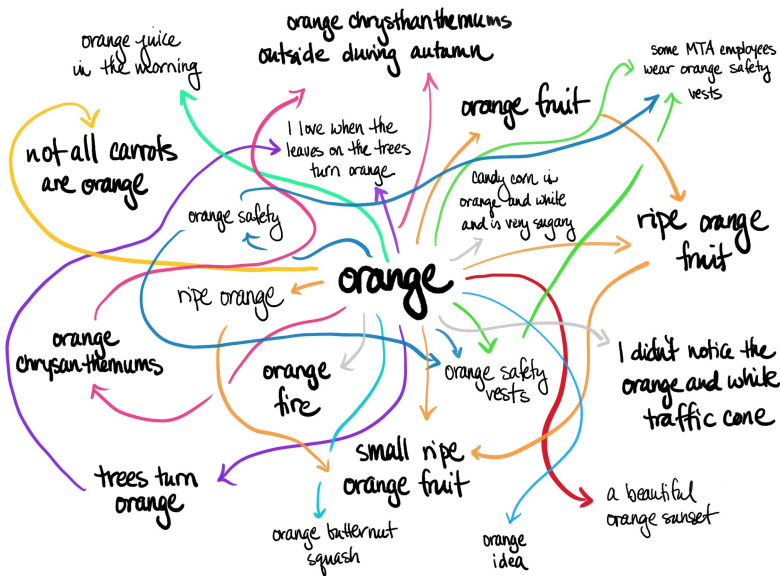 orange juice
in the morning
orange chrysthanthemums
outside during autumn
some MTA employees
wear orange safety
vests
orange fruit
not all carrots
are orange
I love when the
leaves on the trees
turn orange
candy corn is
orange and white
and is very sugary
orange safety
ripe orange
fruit
orange
ripe orange
orange
chrysanthemums
orange
fire
orange safety
vests
I didn't notice the
orange and white
traffic cone
small ripe
orange fruit
trees turn
orange
a beautiful
orange sunset
orange butternut
squash
orange
idea